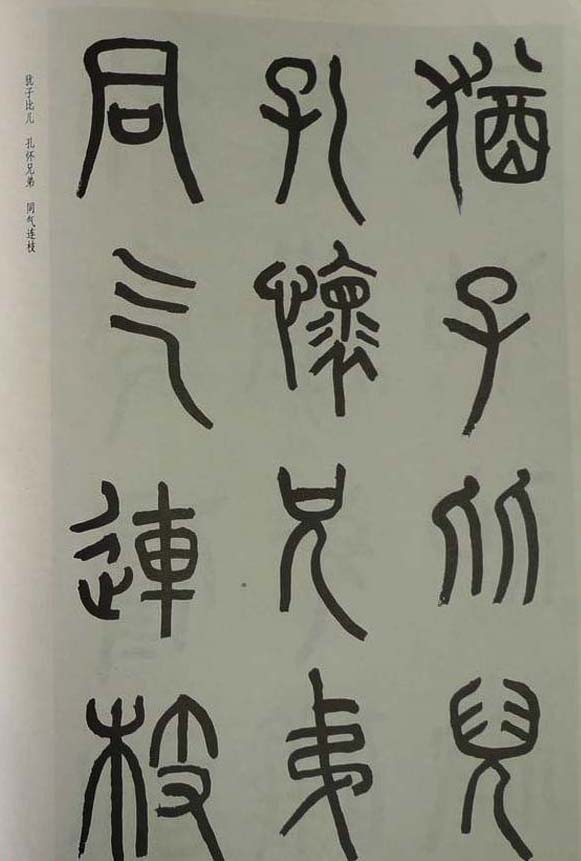 猶子比兒
孔懷兄弟
同气連枝
犹子比儿 孔怀兄弟 同气连枝